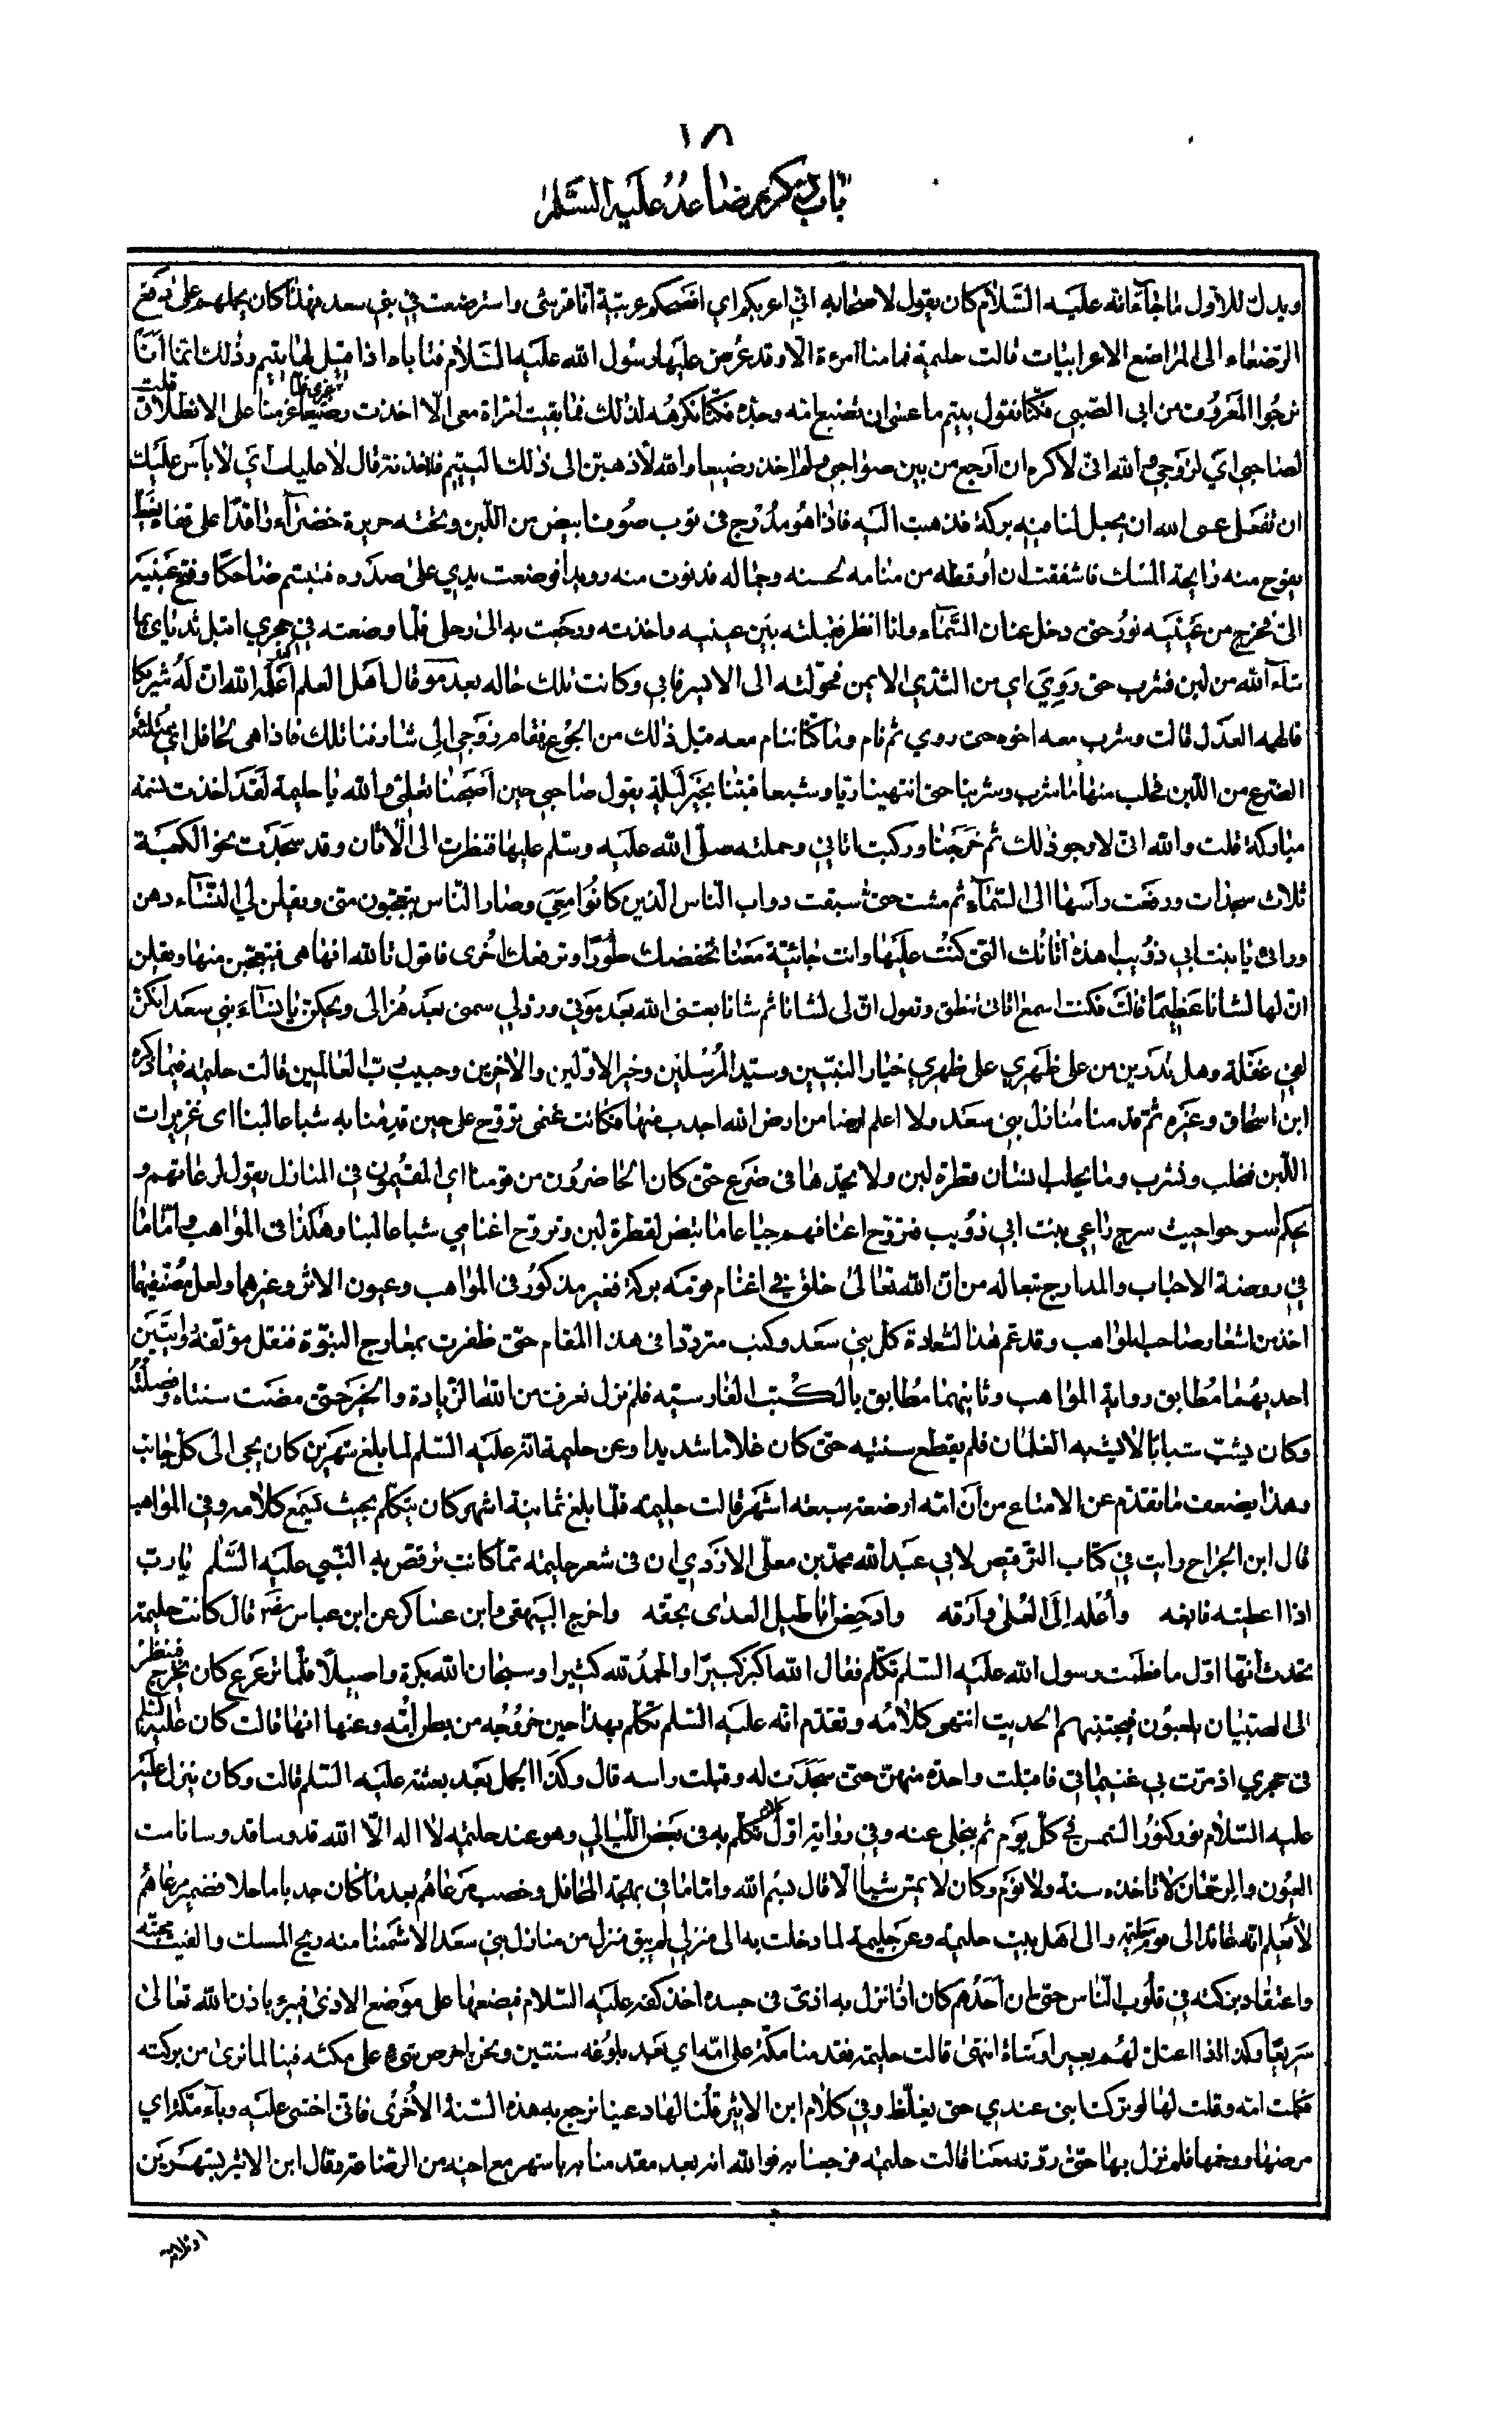 ١٨
باب ذكر رضاعه عليه السلم
ويدل للاول ما جاء انه عليه السلام كان يقول لاصحابه اني اعربكم اي افصحكم عربية انا قرشى واسترضعت في بني سعد فهذا كان يحملهم على دفع
الرضعاء الى المراضع الاعرابيات قالت حليمة فما منا امرءة الا وقد عرض عليها رسول الله عليه السلام فتاباه اذا قيل لها يتيم وذلك انما انا
نرجوا المعروف من ابى الصبى فكنا نقول يتيم ما عسى ان تصنع امه وجده فكنا نكرهه لذلك فما بقيت امراة معى الا اخذت رضيعا غيرى فلما عزمنا على الانطلاق قلت
لصاحبي اي لزوجي والله انى لاكره ان ارجع من بين صواحبى ولم اخذ رضيعا والله لاذهبن الى ذلك اليتيم فلاخذنه قال لا عليك اي لا بأس عليك
ان تفعلى عسى الله ان يجعل لنا فيه بركة فذهبت اليه فاذا هو مدرج فى ثوب صوف ابيض من اللبن وتحته حريرة خضراء راقدا على قفاه يغط
يفوح منه رايحة المسك فاشفقت ان أوقظه من منامه لحسنه وجماله فدنوت منه رويدا فوضعت يدي على صدره فتبسم ضاحكا وفتح عينيه
الى فخرج من عينيه نور حتى دخل عنان السماء وانا انظر فقبلته بين عينيه واخذته ورجعت به الى رحلى فلما وضعته في حجري اقبل ثدياي بما
شاء الله من لبن فشرب حتى روي اى من الثدي الايمن فحولته الى الايسر فابى وكانت تلك حاله بعد قال اهل العلم اعلمه الله ان له شريكا
فالهمه العدل قالت وشرب معه اخوه حتى روي ثم نام وما كنا ننام معه قبل ذلك من الجوع فقام زوجى الى شارفنا تلك فاذا هى لحافل اي ممتلئة
الضرع من اللبن فحلب منها ما شرب وشربنا حتى انتهينا ريا وشبعا فبتنا بخير ليلة يقول صاحبي حين اصبحنا تعلمى والله يا حليمة لقد اخذت نسمة
مباركة قلت والله انى لارجو ذلك ثم خرجنا وركبت اتاني وحملته صلى الله عليه وسلم عليها فنظرت الى الاتان وقد سجدت نحو الكعبة
ثلاث سجدات ورفعت رأسها الى السماء ثم مشت حتى سبقت دواب الناس الذين كانوا معي وصار الناس يتعجبون منى ويقلن لي النساء وهن
ورائى يا بنت ابي ذؤيب اهذه اتانك التى كنت عليها وانت جائية معنا تخفضك طورا وترفعك اخرى فاقول تالله انها هى فيتعجبن منها ويقلن
ان لها لشانا عظيما قالت فكنت اسمع اتانى تنطق وتقول ان لى لشانا ثم شانا بعثنى الله بعد موتي ورد لي سمنى بعد هزالى ويحكن يا نساء بني سعد انكن
لفي غفلة وهل تدرين من على ظهري على ظهري خيار النبيين وسيد المرسلين وخير الاولين والاخرين وحبيب رب العالمين قالت حليمة فيما ذكره
ابن اسحاق وغيره ثم قدمنا منازل بنى سعد ولا اعلم ارضا من ارض الله اجدب منها فكانت غنمى تروح على حين قدمنا به شباعا لبنا اى غزيرات
اللبن فنحلب ونشرب وما يحلب انسان قطرة لبن ولا يجدها فى ضرع حتى كان الحاضرون من قومنا اي المقيمون في المنازل يقول لرعاتهم و
يحكم اسرحوا حيث سرح راعي بنت ابي ذؤيب فتروح اغنامهم جياعا ما تبض لقطرة لبن وتروح اغنامي شباعا لبنا وهكذا فى المواهب واما ما
في روضة الاحباب والمدارج تبعا له من ان الله تعالى خلق في اغنام قومه بركة فغير مذكور فى المواهب وعيون الاثر وغيرهما ولعل مصنفيهما
اخذ من اشعار صاحب المواهب وقد عم هذا لسعادة كل بنى سعد وكنت مترددا فى هذا المقام حتى ظفرت بمعارج النبوة فنقل مؤلفه روايتين
احديهما مطابق رواية المواهب وثانيهما مطابق بالكتب الفارسية فلم نزل نعرف من الله الزيادة والخير حتى مضت سنتاه وفصلته
وكان يشب شبابا لا يشبه الغلمان فلم يقطع سنتيه حتى كان غلاما شديدا وعن حليمة انه عليه السلم لما بلغ شهرين كان يجى الى كل جانب
وهذا يضعف ما تقدم عن الامتاع من ان امه ارضعته سبعه اشهر قالت حليمة فلما بلغ ثمانية اشهر كان يتكلم بحيث يسمع كلامه وفى المواهب
قال ابن الجراح رايت في كتاب الترقيص لابي عبد الله محمد بن معلى الازدي ان فى شعر حليمة مما كانت ترقص به النبي عليه السلم يا رب
اذا اعطيته فابقه وأعله الى العلى وارقه وادحض اباطيل العدى بحقه واخرج البيهقى وابن عساكر عن ابن عباس رضى قال كانت حليمة
تحدث انها اول ما فطمت رسول الله عليه السلم تكلم فقال الله اكبر كبيرا والحمد لله كثيرا وسبحان الله بكرة واصيلا فلما ترعرع كان يخرج فينظر
الى الصبيان يلعبون فيجتنبهم الحديث انتهى كلامه وتقدم انه عليه السلم تكلم بهذا حين خروجه من بطن امه وعنها انها قالت كان عليه السلم
فى حجري اذ مرت بي غنيماتى فاقبلت واحدة منهن حتى سجدت له وقبلت راسه قال وكذا الجمل بعد بعثته عليه السلم قالت وكان ينزل عليه
عليه السلام نور كنور الشمس في كل يوم ثم ينجلى عنه وفي رواية اول كلام تكلم به فى بعض الليالي وهو عند حليمة لا اله الا الله قدوسا قدوسا نامت
العيون والرحمان لا تاخذه سنة ولا نوم وكان لا يمس شيا الا قال بسم الله واما ما في بهجة المحافل وخصب مرعاهم بعد ما كان جدبا ماحلا فضمير مرعاهم
لا نعلم انه عائد الى قوم حليمة او الى اهل بيت حليمة وعن حليمة لما دخلت به الى منزلي لم يبق منزل من منازل بني سعد الا شممنا منه ريح المسك والقيت محبته
واعتقاد بركته في قلوب الناس حتى ان احدهم كان اذا نزل به اذى فى جسده اخذ كفه عليه السلام فيضعها على موضع الاذى فيبرء باذن الله تعالى
سريعا وكذا اذا اعتل لهم بعير او شاة انتهى قالت حليمة فقدمنا مكة على امه اي بعد بلوغه سنتين ونحن احرص شىء على مكثه فينا لما نرى من بركته
فكلمت امه وقلت لها لو تركت ابنى عندي حتى يغلظ وفي كلام ابن الاثير قلنا لها دعينا نرجع به هذه السنة الاخرى فانى اخشى عليه وباء مكة اي
مرضها ووخمها فلم نزل بها حتى ردته معنا قالت حليمة فرجعنا به فوالله انه بعد مقدمنا به باشهر مع اخيه من الرضاعة وقال ابن الاثير بشهرين